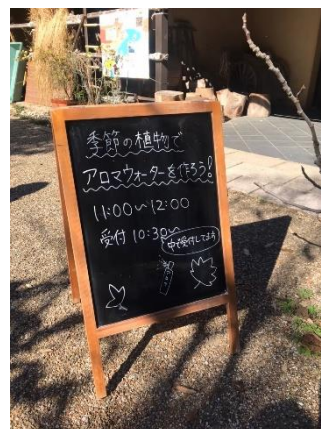 季節の植物で
アロマウォーターを作ろう!
11:00〜12:00
受付 10:30〜
中で受付してます